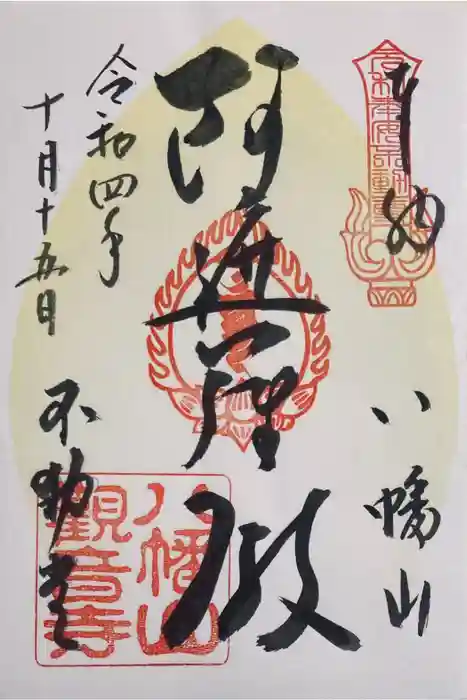 奉納
八幡山
阿遮羅殿
令和四年
十月十五日
不動堂
八幡山
觀音寺